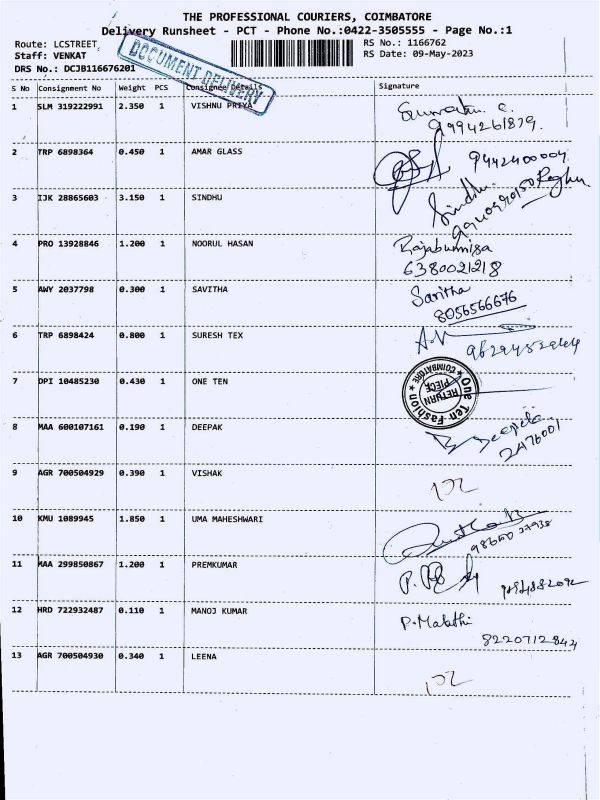 THE PROFESSIONAL COURIERS, COIMBATORE
Delivery Runsheet - PCT - Phone No.:0422-3505555 - Page No.:1
Route: LCSTREET
Staff: VENKAT
DRS No.: DCJB116676201
RS No.: 1166762
RS Date: 09-May-2023
DOCUMENT DELIVERY
S No Consignment No Weight PCS Consignee Details Signature
1 SLM 319222991 2.350 1 VISHNU PRIYA
9994261879.
2 TRP 6898364 0.450 1 AMAR GLASS 9442400004
3 IJK 28865603 3.150 1 SINDHU Sindhu Raghu
4 PRO 13928846 1.200 1 NOORUL HASAN Rajabunnisa
6380021218
5 AWY 2037798 0.300 1 SAVITHA Savitha
8056566676
6 TRP 6898424 0.800 1 SURESH TEX
7 DPI 10485230 0.430 1 ONE TEN
One Ten Fashion
COIMBATORE
RETURN
PIECE
8 MAA 600107161 0.190 1 DEEPAK Deepika
2476001
9 AGR 700504929 0.390 1 VISHAK
10 KMU 1089945 1.850 1 UMA MAHESHWARI
11 MAA 299850867 1.200 1 PREMKUMAR
12 HRD 722932487 0.110 1 MANOJ KUMAR P. Malathi
8220712844
13 AGR 700504930 0.340 1 LEENA